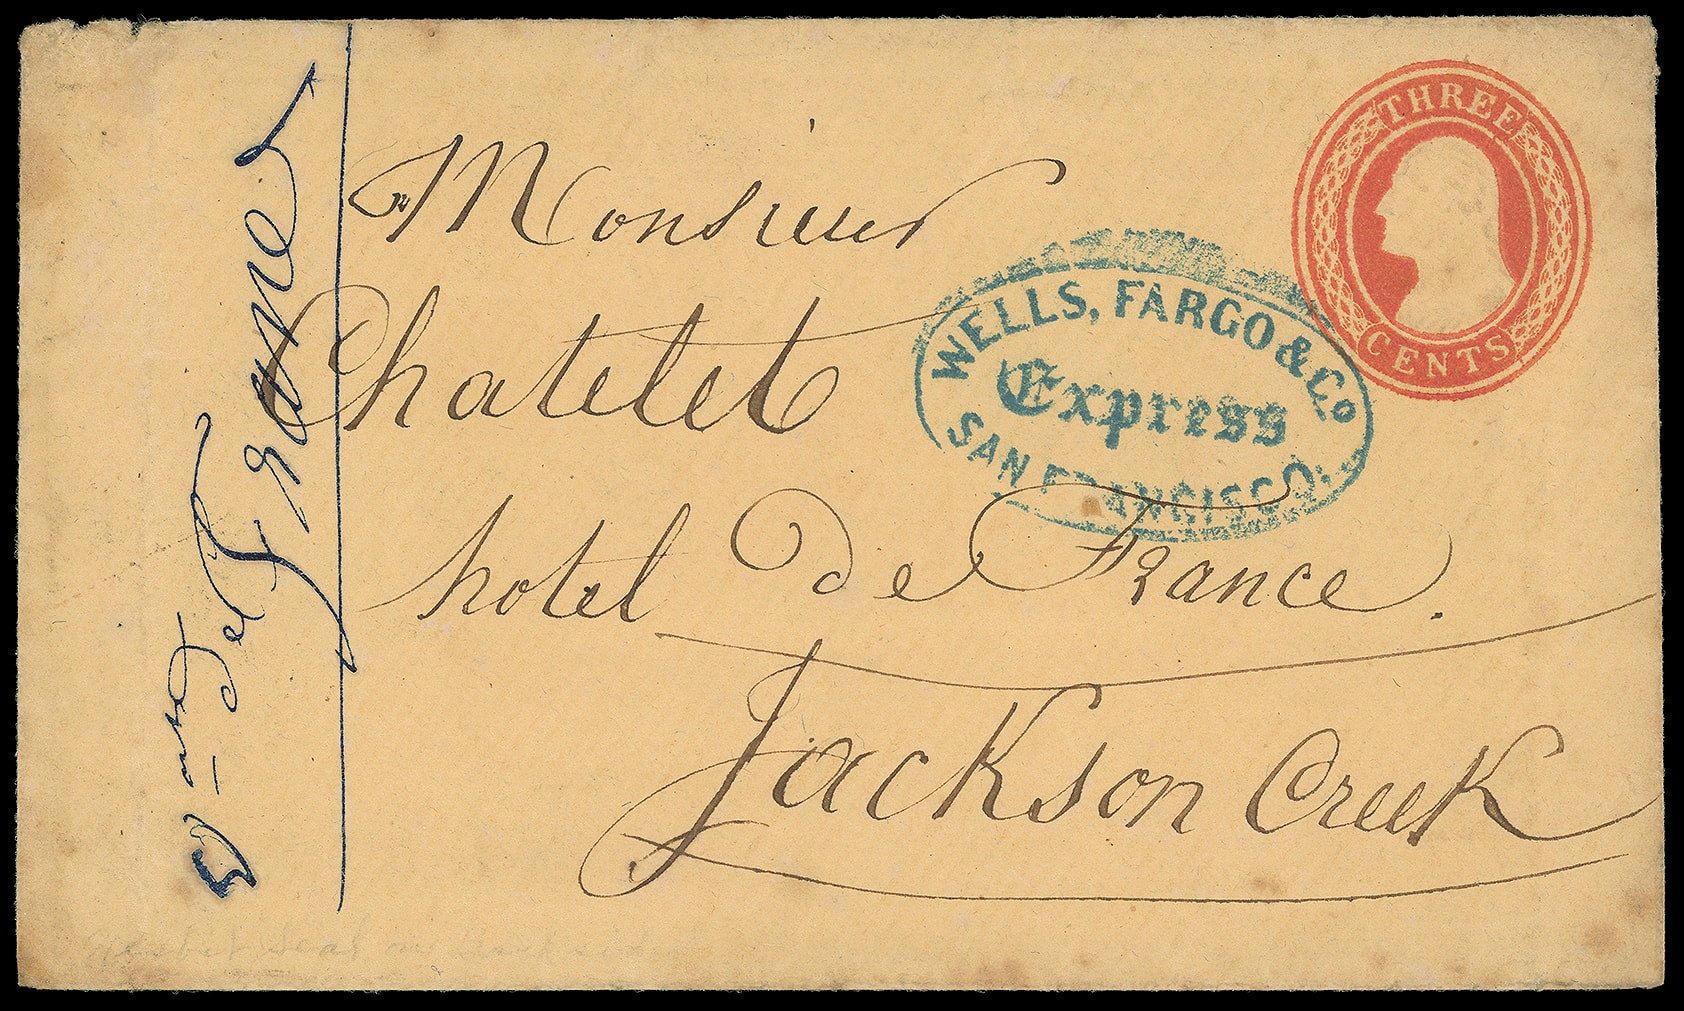 THREE
CENTS
WELLS, FARGO & Co
Express
SAN FRANCISCO.
Monsieur
Chatelet
hotel de France.
Jackson Creek
de France